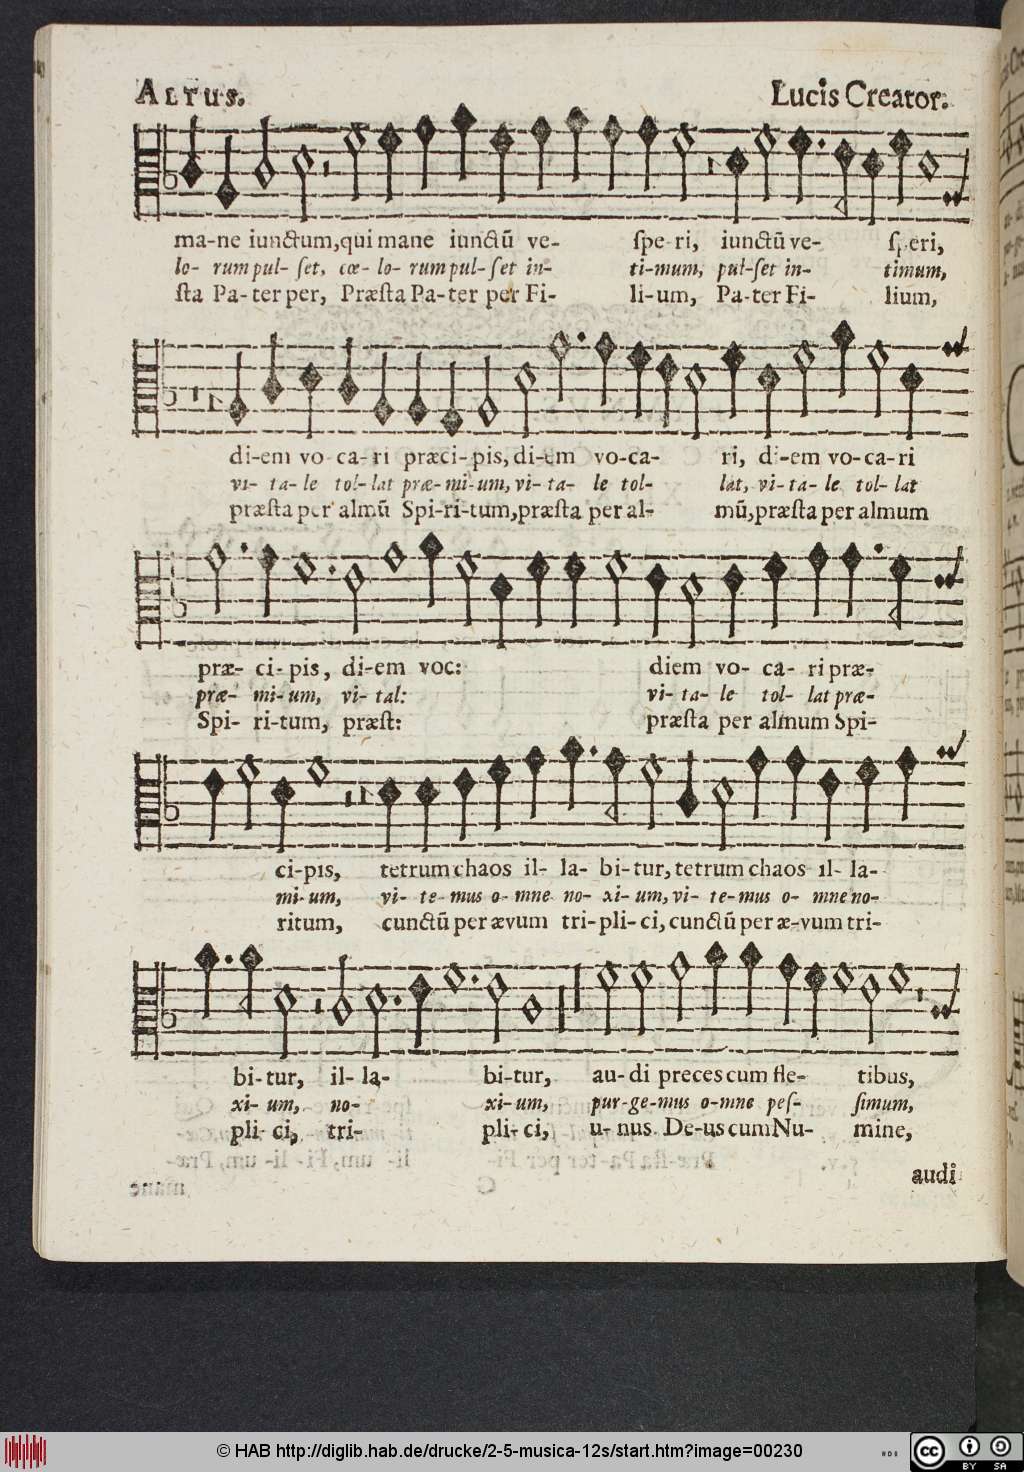 ALTUS.
Lucis Creator.
ma-ne iunctum, qui mane iunctū ve- spe-ri, iunctū ve- speri,
lo- rum pul- set, cœ- lo- rum pul- set in- ti-mum, pul-set in- timum,
sta Pa-ter per, Præsta Pa-ter per Fi- li-um, Pa-ter Fi- lium,
di-em vo-ca-ri præci-pis, di-em vo-ca- ri, di-em vo-ca-ri
vi- ta- le tol-lat præ-mi-um, vi- ta- le tol- lat, vi-ta- le tol- lat
præsta per almū Spi-ri-tum, præsta per al- mū, præsta per almum
præ- ci- pis, di-em voc: diem vo- ca- ri præ-
præ- mi- um, vi- tal: vi- ta- le tol- lat præ-
Spi- ri-tum, præst: præsta per almum Spi-
ci-pis, tetrum chaos il- la- bi-tur, tetrum chaos il- la-
mi-um, vi- te- mus o- mne no- xi- um, vi- te-mus o- mne no-
ritum, cunctū per ævum tri-pli-ci, cunctū per æ-vum tri-
bi-tur, il- la- bi-tur, au-di preces cum fle- tibus,
xi- um, no- xi-um, pur-ge-mus o-mne pes- simum,
pli-ci, tri- pli-ci, u- nus De-us cum Nu- mine,
audi
© HAB http://diglib.hab.de/drucke/2-5-musica-12s/start.htm?image=00230
cc BY SA